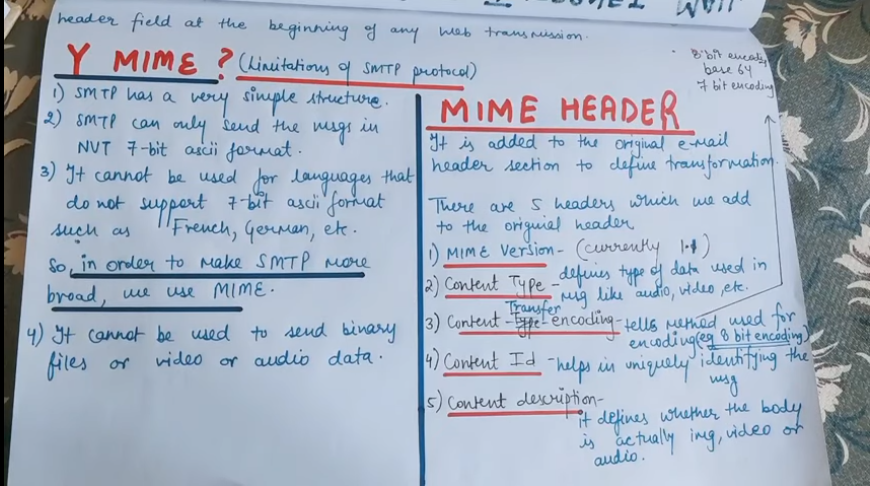 header field at the beginning of any web transmission.
Y MIME? (Limitations of SMTP protocol)
1) SMTP has a very simple structure.
2) SMTP can only send the msgs in
NVT 7-bit ascii format.
3) It cannot be used for languages that
do not support 7-bit ascii format
such as French, German, etc.
So, in order to make SMTP more
broad, we use MIME.
4) It cannot be used to send binary
files or video or audio data.
8 bit encoding
base 64
7 bit encoding
MIME HEADER
It is added to the original e-mail
header section to define transformation.
There are 5 headers which we add
to the original header
1) MIME Version - (currently 1.1)
2) Content Type - defines type of data used in
msg like audio, video, etc.
3) Content - Transfer - encoding - tells method used for
encoding (eg 8 bit encoding)
4) Content Id - helps in uniquely identifying the
msg
5) Content description -
it defines whether the body
is actually img, video or
audio.